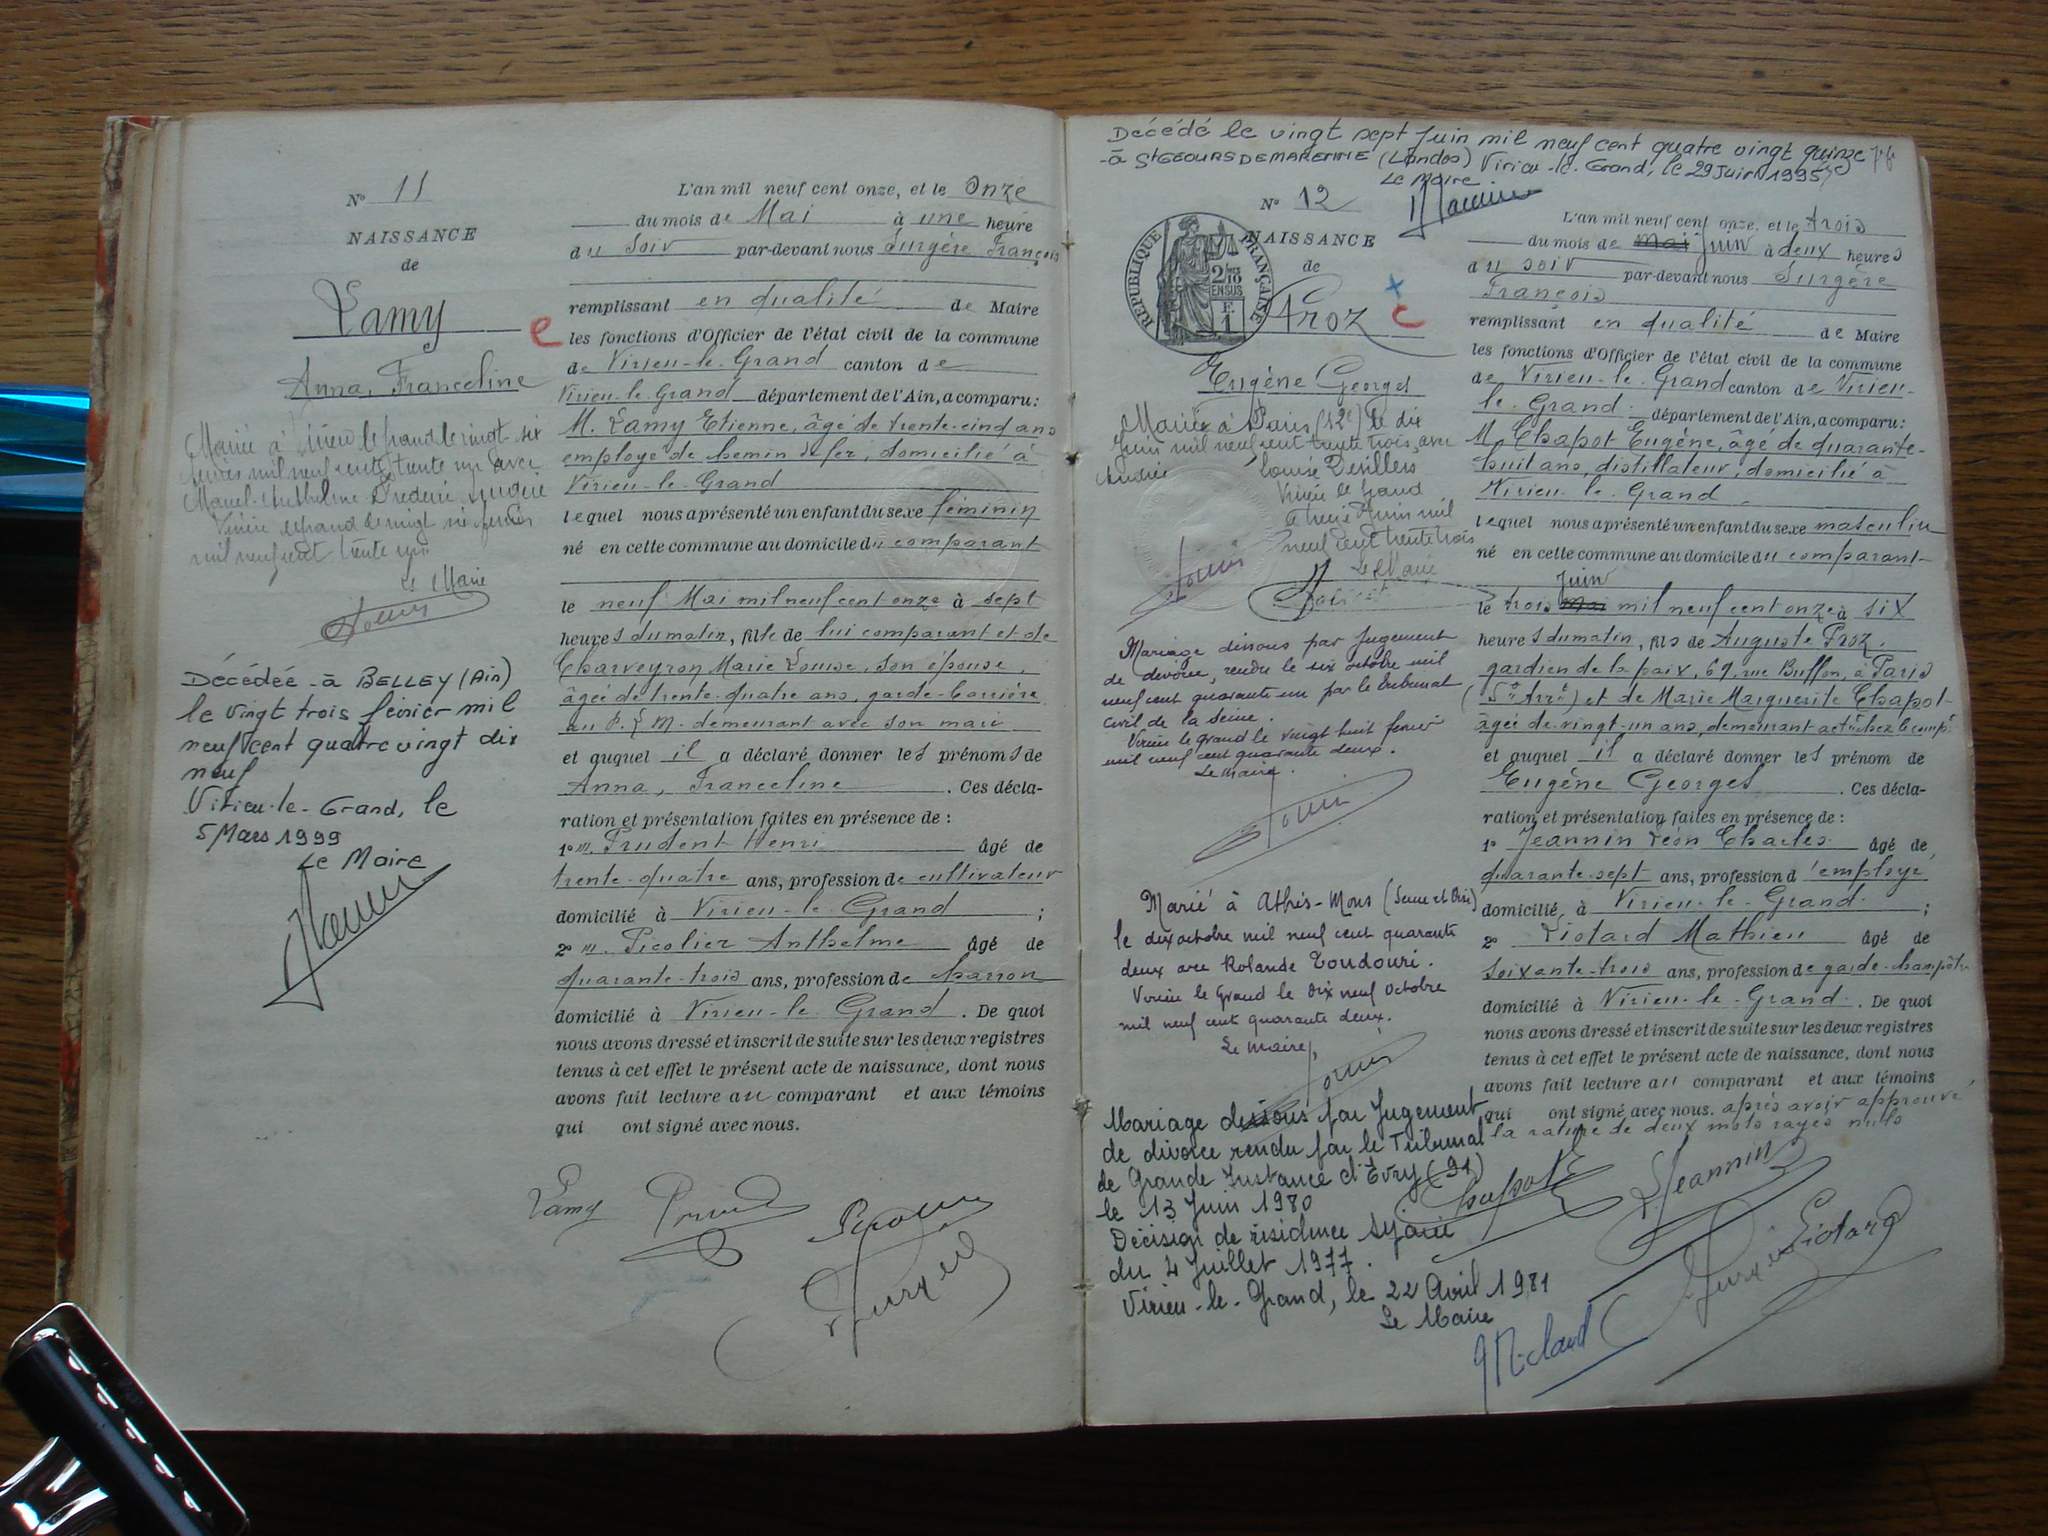 N° 11
NAISSANCE
de
Lamy
Anna, Franceline
Mariée à Virieu le Grand le vingt-six
mil neuf cent trente un avec
Marcel Anthelme Frédéric
Virieu le Grand le vingt
mil neuf cent trente un
Le Maire
Décédée à BELLEY (Ain)
le vingt trois février mil
neuf cent quatre vingt dix
neuf
Virieu-le-Grand, le
5 Mars 1999
Le Maire
L'an mil neuf cent onze, et le Onze
du mois de Mai à une heure
du Soir par-devant nous Surgère François
remplissant en qualité de Maire
les fonctions d'Officier de l'état civil de la commune
de Virieu-le-Grand canton de
Virieu-le-Grand département de l'Ain, a comparu:
M. Lamy Etienne, âgé de trente-cinq ans
employé de chemin de fer, domicilié à
Virieu-le-Grand
lequel nous a présenté un enfant du sexe féminin
né en cette commune au domicile du comparant
le neuf Mai mil neuf cent onze à sept
heures du matin, fille de lui comparant et de
Charveyron Marie Louise, son épouse,
âgée de trente-quatre ans, garde-barrière
au P.L.M. demeurant avec son mari
et auquel il a déclaré donner les prénoms de
Anna, Franceline. Ces décla-
ration et présentation faites en présence de:
1° m. Prudent Henri âgé de
trente-quatre ans, profession de cultivateur
domicilié à Virieu-le-Grand ;
2° m. Picolier Anthelme âgé de
quarante-trois ans, profession de charron
domicilié à Virieu-le-Grand. De quoi
nous avons dressé et inscrit de suite sur les deux registres
tenus à cet effet le présent acte de naissance, dont nous
avons fait lecture au comparant et aux témoins
qui ont signé avec nous.
Lamy
Décédé le vingt sept Juin mil neuf cent quatre vingt quinze
à St GEOURS DE MAREMNE (Landes) Virieu-le-Grand, le 29 Juin 1995
Le Maire
N° 12
NAISSANCE
de
RÉPUBLIQUE FRANÇAISE
2/10 EN SUS
E 1
Proz
Eugène Georges
Marié à Paris (12e) le dix
Juin mil neuf cent trente trois, avec
Andrée Louise Devillers
Virieu le Grand
le treize Juin mil
neuf cent trente trois
Le Maire
Mariage dissous par Jugement
de divorce, rendu le six octobre mil
neuf cent quarante un par le tribunal
civil de la Seine.
Virieu le Grand le vingt huit février
mil neuf cent quarante deux.
Le Maire.
Marié à Athis-Mons (Seine et Oise)
le dix octobre mil neuf cent quarante
deux avec Rolande Toudouri.
Virieu le Grand le dix neuf octobre
mil neuf cent quarante deux.
Le Maire,
Mariage dissous par Jugement
de divorce rendu par le Tribunal
de Grande Instance d'Evry (91)
le 13 Juin 1980
Décision de résidence séparée
du 4 Juillet 1977.
Virieu-le-Grand, le 22 Avril 1981
Le Maire
L'an mil neuf cent onze, et le trois
du mois de mai Juin à deux heures
du soir par-devant nous Surgère
François
remplissant en qualité de Maire
les fonctions d'Officier de l'état civil de la commune
de Virieu-le-Grand canton de Virieu-
le-Grand département de l'Ain, a comparu:
M. Chapot Eugène, âgé de quarante-
huit ans, distillateur, domicilié à
Virieu-le-Grand
lequel nous a présenté un enfant du sexe masculin
né en cette commune au domicile du comparant
Juin
le trois mai mil neuf cent onze à six
heures du matin, fils de Auguste Proz,
gardien de la paix, 67, rue Buffon, à Paris
(5e Arrt) et de Marie Marguerite Chapot
âgée de vingt-un ans, demeurant actu chez le comp
et auquel il a déclaré donner les prénom de
Eugène Georges. Ces décla-
ration et présentation faites en présence de:
1° Jeannin Léon Charles âgé de
quarante-sept ans, profession d'employé
domicilié à Virieu-le-Grand ;
2° Liotard Mathieu âgé de
soixante-trois ans, profession de garde-champêtre
domicilié à Virieu-le-Grand. De quoi
nous avons dressé et inscrit de suite sur les deux registres
tenus à cet effet le présent acte de naissance, dont nous
avons fait lecture au comparant et aux témoins
qui ont signé avec nous. après avoir approuvé
la rature de deux mots rayés nuls
Chapot E
Jeannin
Liotard
Michaud